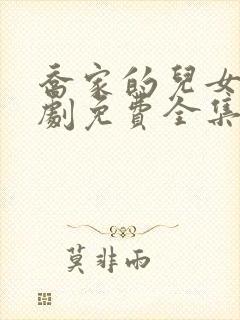 喬家的兒女
劇免費全集
莫非雨